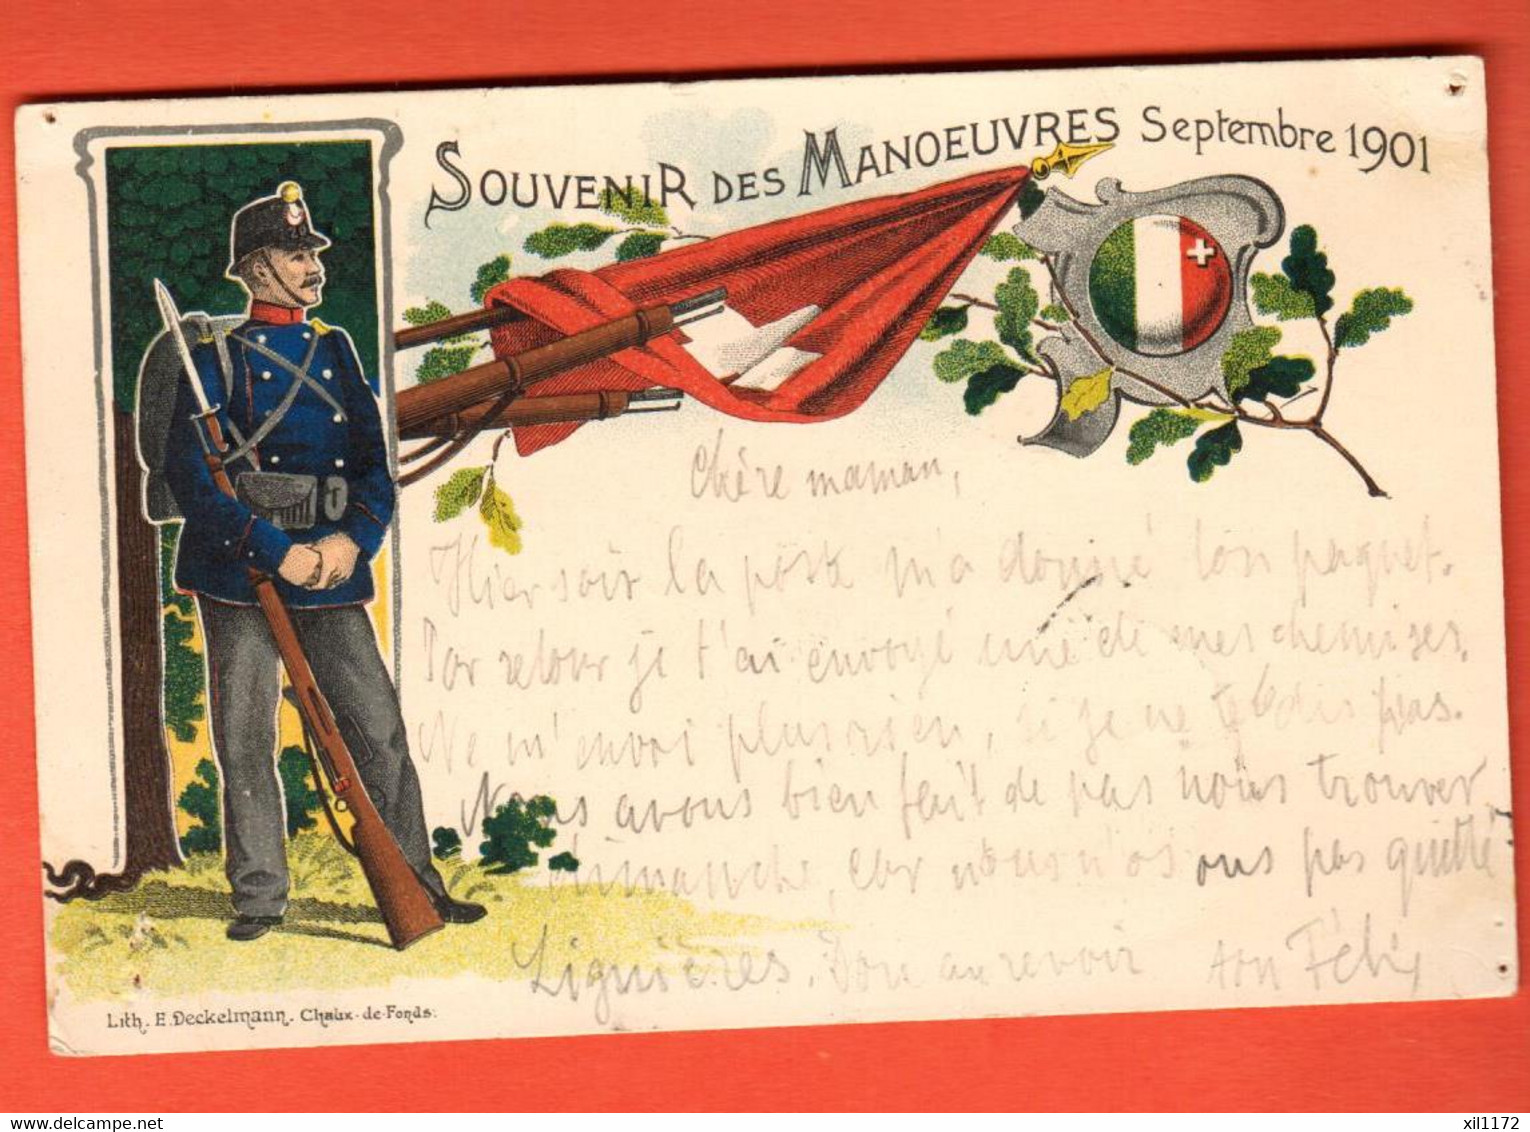 SOUVENIR DES MANOEUVRES Septembre 1901
Chère maman,
Hier soir la poste m'a donné ton paquet.
Par retour je t'ai envoyé une de mes chemises.
Ne m'envoi plus rien, si je ne te dis pas.
Nous avons bien fait de pas nous trouver
dimanche, car nous n'avons pas quitté
Lignières. Don au revoir ton Félix
Lith. E. Deckelmann. Chaux-de-Fonds.
delcampe.net
xil1172